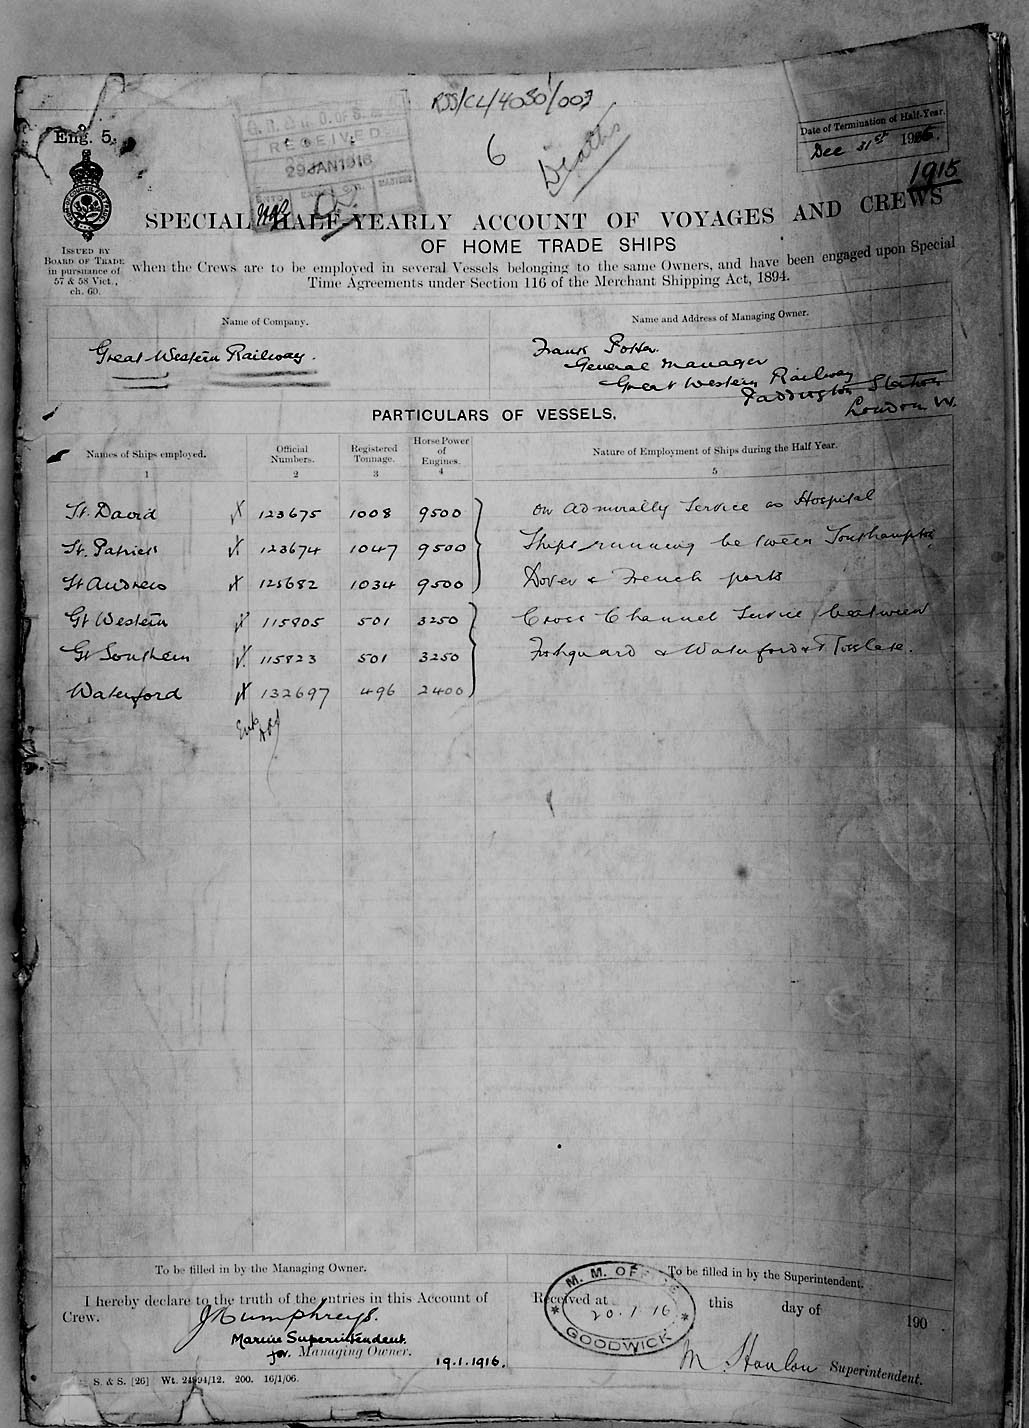 RSS/CL/4030/003
6
Deaths
Eng. 5.
RECEIVED
29 JAN 1916
Date of Termination of Half-Year.
Dec 31st 1915.
1915
SPECIAL HALF-YEARLY ACCOUNT OF VOYAGES AND CREWS
OF HOME TRADE SHIPS
ISSUED BY
BOARD OF TRADE
in pursuance of
57 & 58 Vict.,
ch. 60.
when the Crews are to be employed in several Vessels belonging to the same Owners, and have been engaged upon Special
Time Agreements under Section 116 of the Merchant Shipping Act, 1894.
Name of Company.
Name and Address of Managing Owner.
Great Western Railway.
Frank Potter.
General Manager
Great Western Railway
Paddington Station
London W.
PARTICULARS OF VESSELS.
Names of Ships employed. Official Numbers. Registered Tonnage. Horse Power of Engines. Nature of Employment of Ships during the Half Year.
1 2 3 4 5
St. David 123675 1008 9500 on Admiralty Service as Hospital
St. Patrick 123674 1047 9500 Ships running between Southampton
St Andrew 125682 1034 9500 Dover & French ports
Gt Western 115805 501 3250 Cross Channel Service beatween
Gt Southern 115823 501 3250 Fishguard & Waterford & Rosslare.
Waterford 132697 496 2400
To be filled in by the Managing Owner.
I hereby declare to the truth of the entries in this Account of
Crew.
J Humphreys.
Marine Superintendent.
for Managing Owner.
19.1.1916.
To be filled in by the Superintendent.
Received at this day of 190 .
M. M. OFFICE
20.1.16
GOODWICK
M Hanlon Superintendent.
S. & S. [26] Wt. 24994/12. 200. 16/1/06.